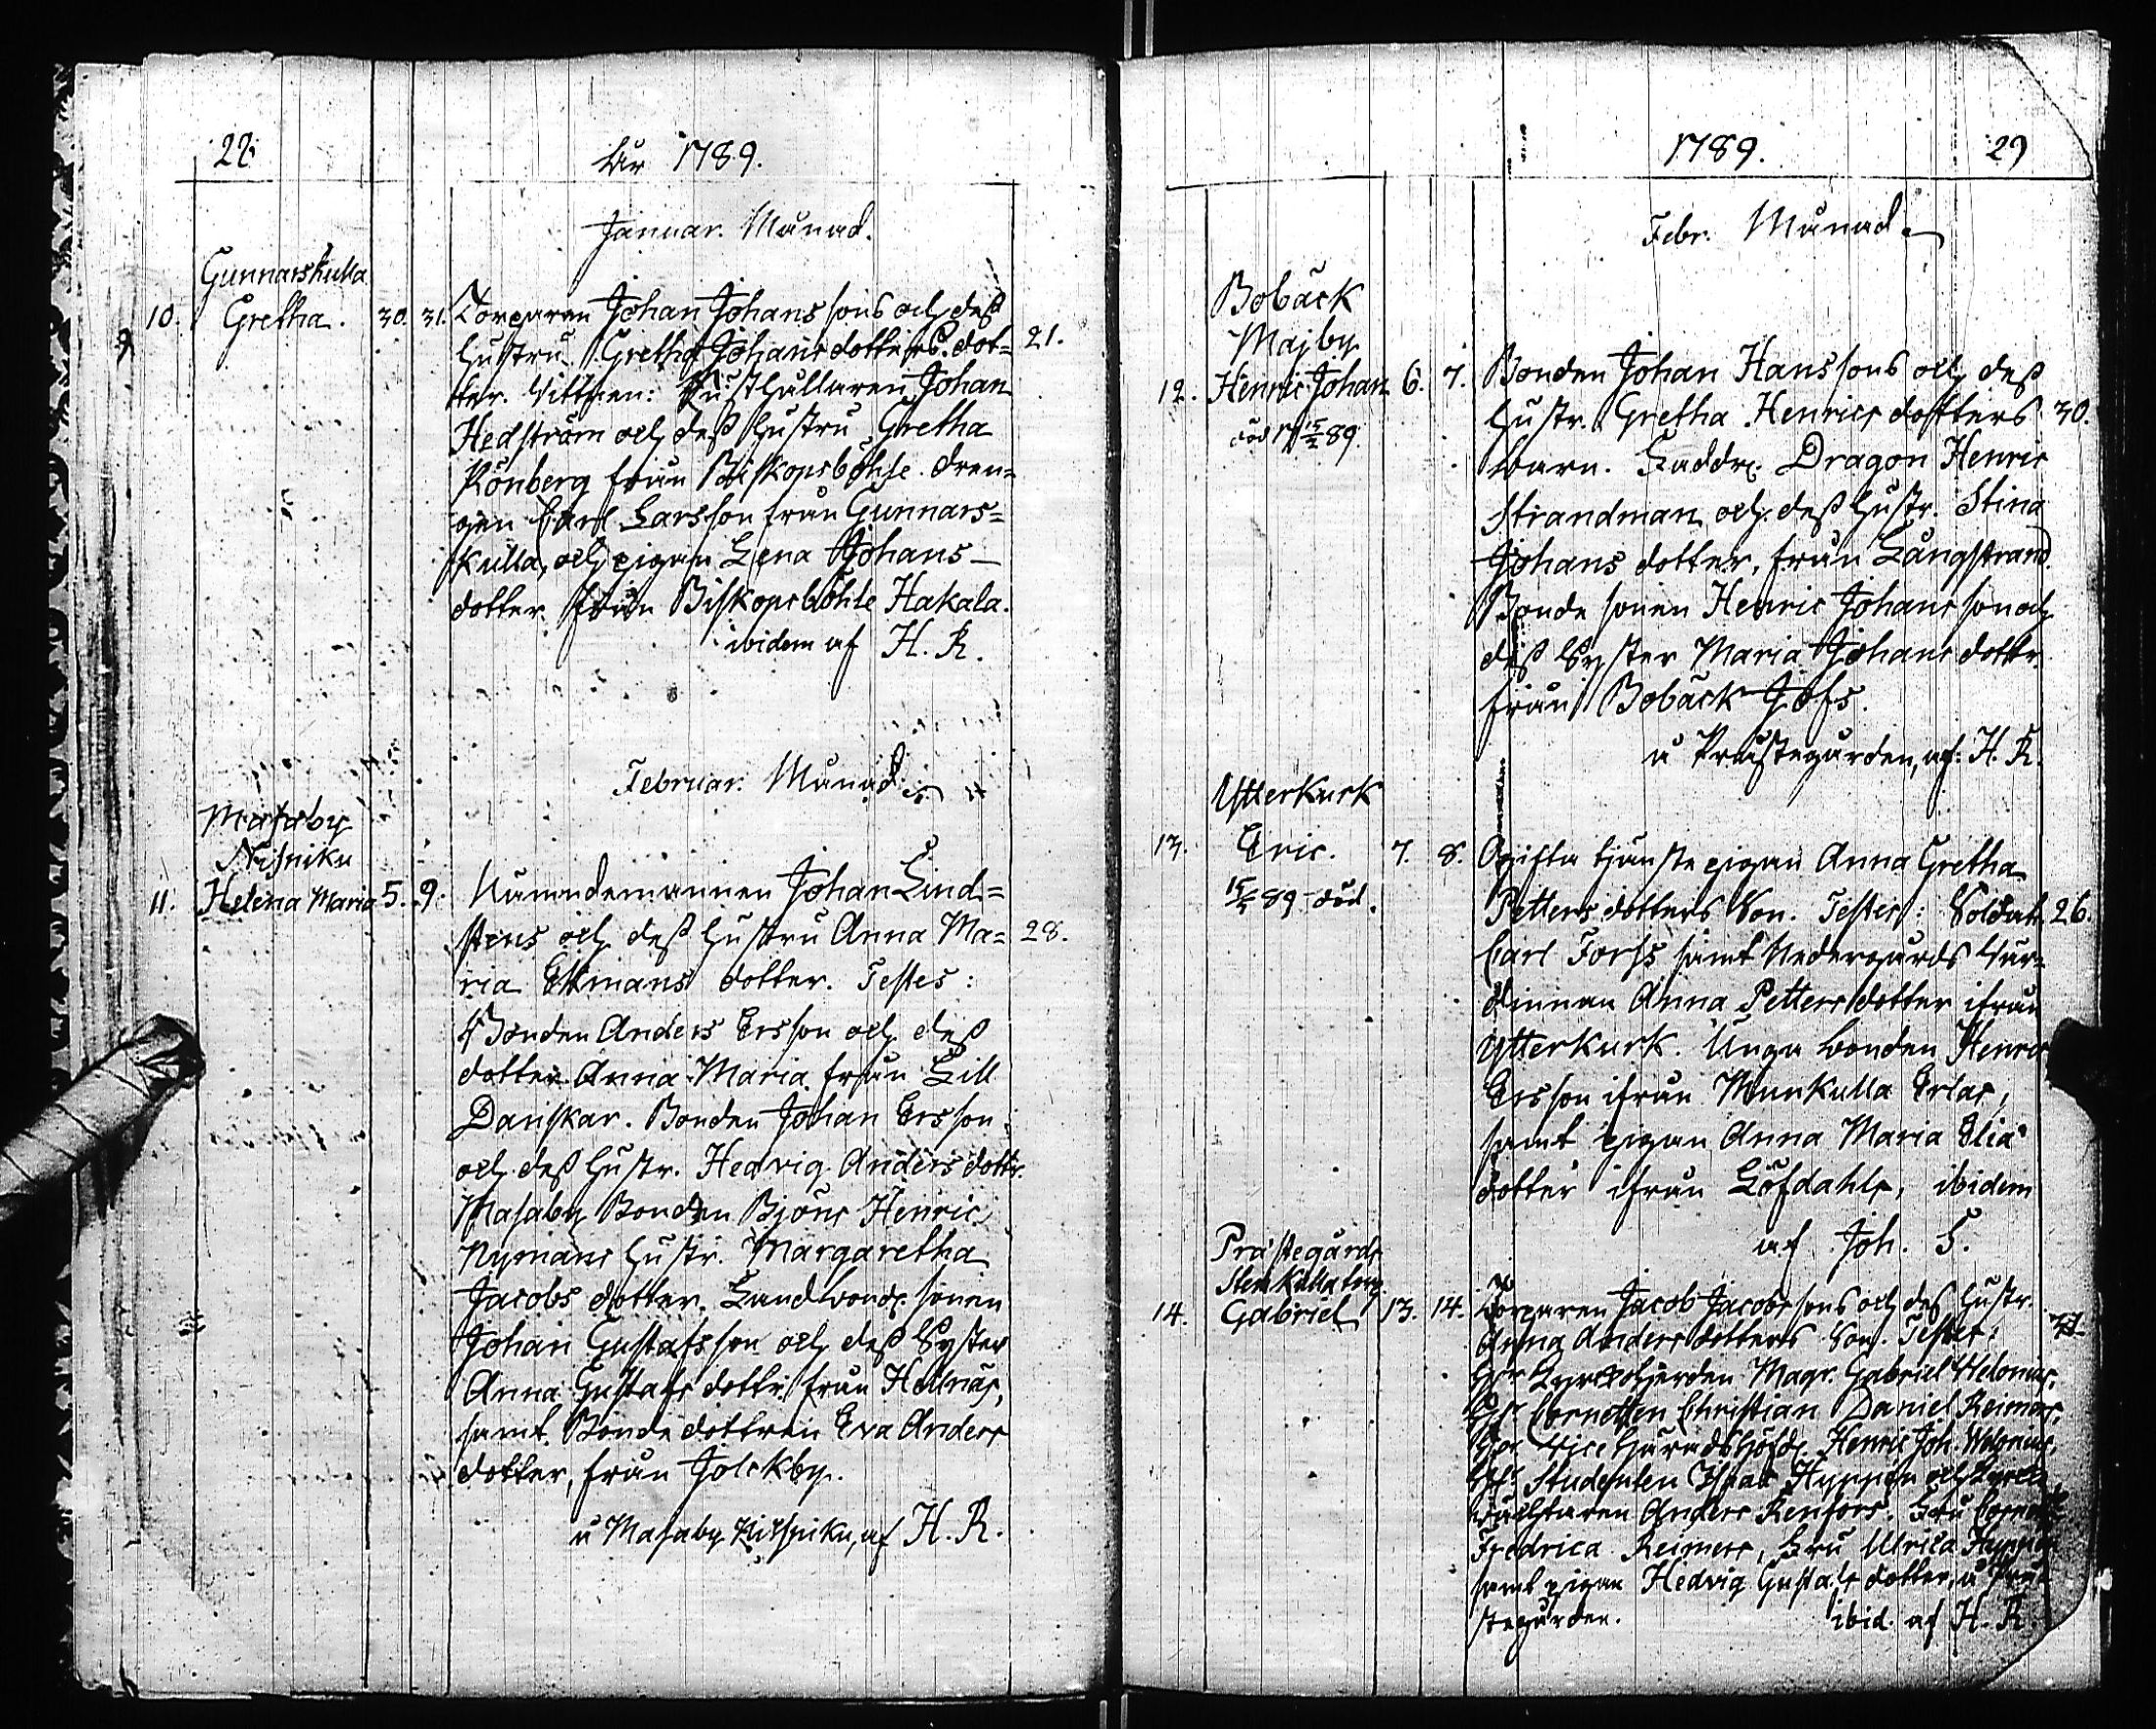 28.
År 1789.
Januar. Månad.
Gunnarskulla
10. Gretha. 30. 31. Torparen Johan Johans sons och deß
hustru Gretha Johans dotters dot= 21.
ter. Vittnen: Rusthållaren Johan
Hedström och deß hustru Gretha
Rönberg från Biskopsböhle. dren=
gen Carl Larsson från Gunnars=
kulla, och pigan Lena Johans
dotter från Biskopsböhle Hakala.
ibidem af H. R.
Februar. Månad.
Masaby
Nisniku
11. Helena Maria 5. 9. Nämndemannen Johan Lind=
stens och deß hustru Anna Ma= 28.
ria Ekmans dotter. Testes:
Bonden Anders Ersson och deß
dotter Anna Maria från Lill
Danskar. Bonden Johan Ersson
och deß hustr. Hedvig Anders dottr.
Masaby Bonden Björns Henric
Nymans hustr. Margaretha
Jacobs dotter. Landbonde sonen
Johan Gustafs son och deß Syster
Anna Gustafs dottr. från Hellnäs,
samt Bonde dottren Eva Anders
dotter, från Jolckby.
i Masaby Nissniku, af H. R.
1789. 29
Febr. Månad.
Bobäck
Majby
12. Henric Johan 6. 7. Bonden Johan Hans sons och deß
död 15/2 89.
hustr. Gretha Henrics dotters 30.
barn. Faddr. Dragon Henric
Strandman och deß hustr. Stina
Johans dotter, från Långstrand.
Bonde sonen Henric Johans son och
deß Syster Maria Johans dottr.
från Bobäck Jofs.
i Prästegården, af H. R.
Ytterkurk
13. Eric. 7. 8. Ogifta tjänste pigan Anna Gretha
15/2 89 död.
Petters dotters Son. Testes: Soldat. 26.
Carl Forss samt Nedergårds Vär=
dinnan Anna Petters dotter ifrån
Ytterkurk. Unga bonden Henric
Ersson ifrån Munkulla Erlas,
samt pigan Anna Maria Elia
dotter ifrån Löfdahls, ibidem
af Joh. S.
Prästegårds
Stenkulla torp
14. Gabriel 13. 14. Torparen Jacob Jacobs sons och deß hustr.
Anna Anders dotters Son. Testes:
Herr Kyrckoherden Magr. Gabriel
Herr Cornetten Christian Daniel Reimers,
Herr Vice Häradshöfd. Henric Joh.
Herr Studenten Isaac Hyppen och Kyrcko
wächtaren Anders Renfors. Fru
Fredrica Reimers, Fru Ulrica
samt pigan Hedvig Gustafs dotter, i Prä
stegården. ibid. af H. R.